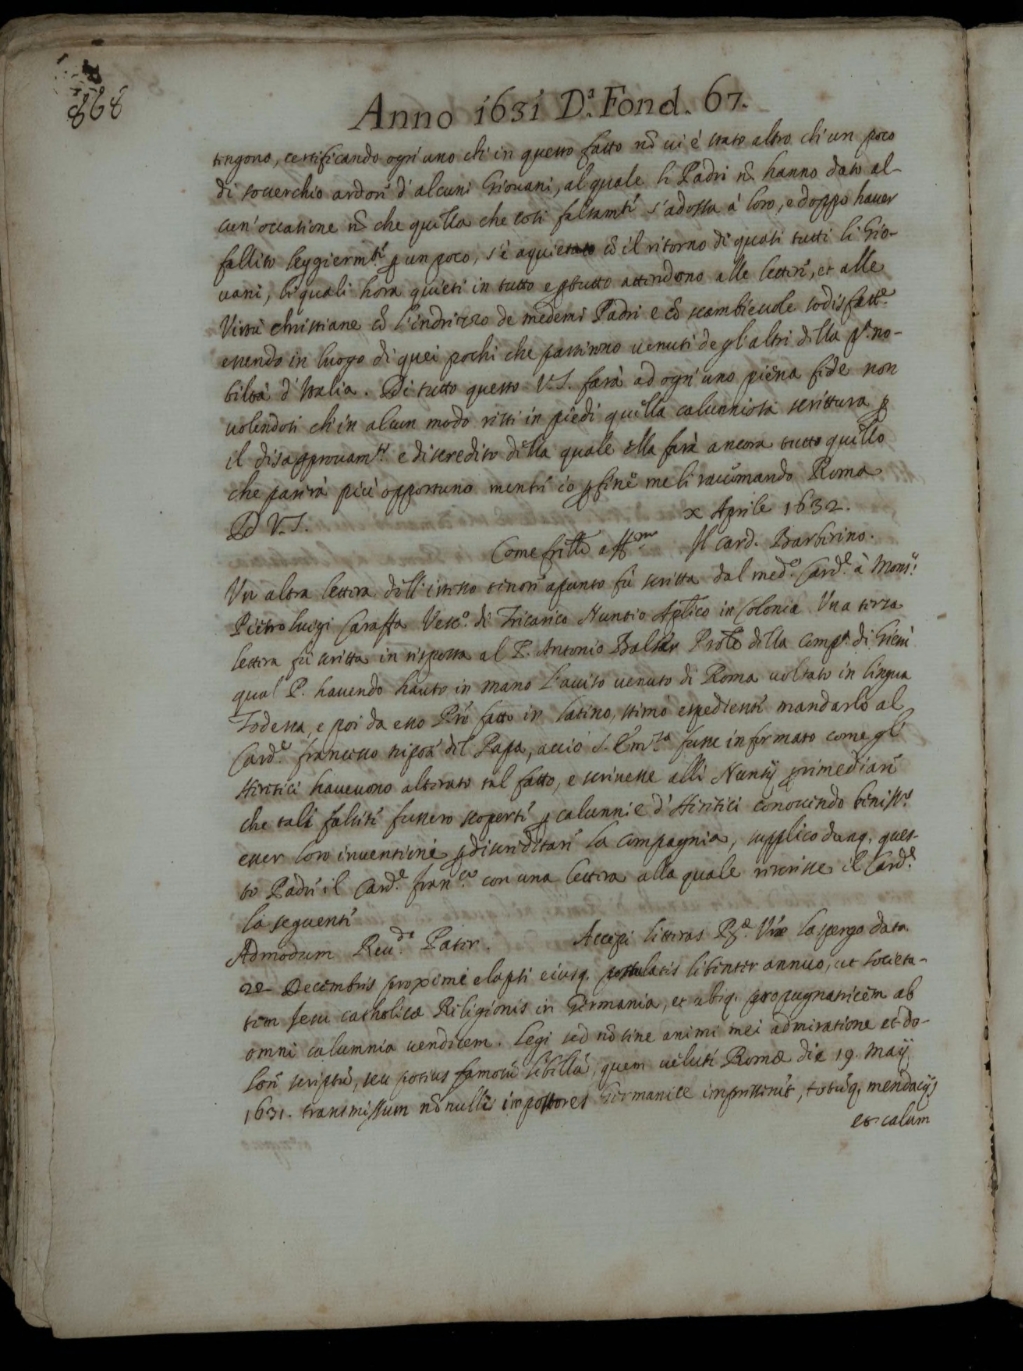 868
Anno 1631 D.ª Fond. 67.
tengono, certificando ogn'uno ch'in questo fatto nõ vi è stato altro ch'un poco
di soverchio ardore d'alcuni Giovani, al quale li Padri nõ hanno dato al-
cun'occatione nõ che quella che così falsamte s'adossa à loro, e doppo haver
fallito leggiermte p un poco, s'è aquietato cõ il ritorno di quasi tutti li Gio-
vani, li quali hora quieti in tutto e p tutto attendono alle lettere, et alle
Virtù christiane cõ l'indrizzo de medemi Padri e cõ scambievole sodisfatt.e
essendo in luogo di quei pochi che partirno venuti degl'altri della p.ª no-
biltà d'Italia. Di tutto questo V.S. farà ad ogn'uno piena fede non
volendosi ch'in alcun modo resti in piedi quella calunniosa scrittura p
il disapprovamto e discredito della quale ella farà ancora tutto quello
che parirà più opportuno mentre io p fine me li raccomando Roma
D V.S. x Aprile 1632.
Come frllo aff.mo Il Card. Barberino.
Un altra lettera dell'istesso tenore apunto fù scritta dal med.o Card.e à Mons.r
Pietro luigi Caraffa Vesc.o di Tricarico Nuntio Aplico in Colonia. Una terza
lettera fù scritta in risposta al P. Antonio Prole della Comp.ª di Giesù
qual P. havendo hauto in mano l'aviso venuto di Roma voltato in lingua
Todesca, e poi da esso Prõ fatto in latino, stimò espediente mandarlo al
Card.e francesco nipote del Papa, acciò S. Emza fusse informato come gl'
Heretici havevono alterato tal fatto, e scrivesse alli Nuntij p rimediare
che tali falsità fussero scoperte p calunnie d'Heretici conoscendo beniss.o
esser loro inventione p discreditare la Compagnia, supplicò dunq. ques-
to Padre il Card.e fran.co con una lettera alla quale rescrisse il Card.e
la seguente
Admodum Reu.de Pater. Accepi litteras Rae Vrae data
22 Decembris proxime elapsi eiusq. postulatis libenter annuo, ut Societa-
tem Jesu catholicæ Religionis in Germania, et ubiq. propugnatricem ab
omni calumnia vendicem. Legi sed nõ sine animi mei admiratione et do-
lore scriptũ, seu potius famosũ libellũ, quem veluti Romæ die 19 Maij
1631. transmissum nõnulli impostores Germanice impresserũt, totũq. mendacijs
et calum